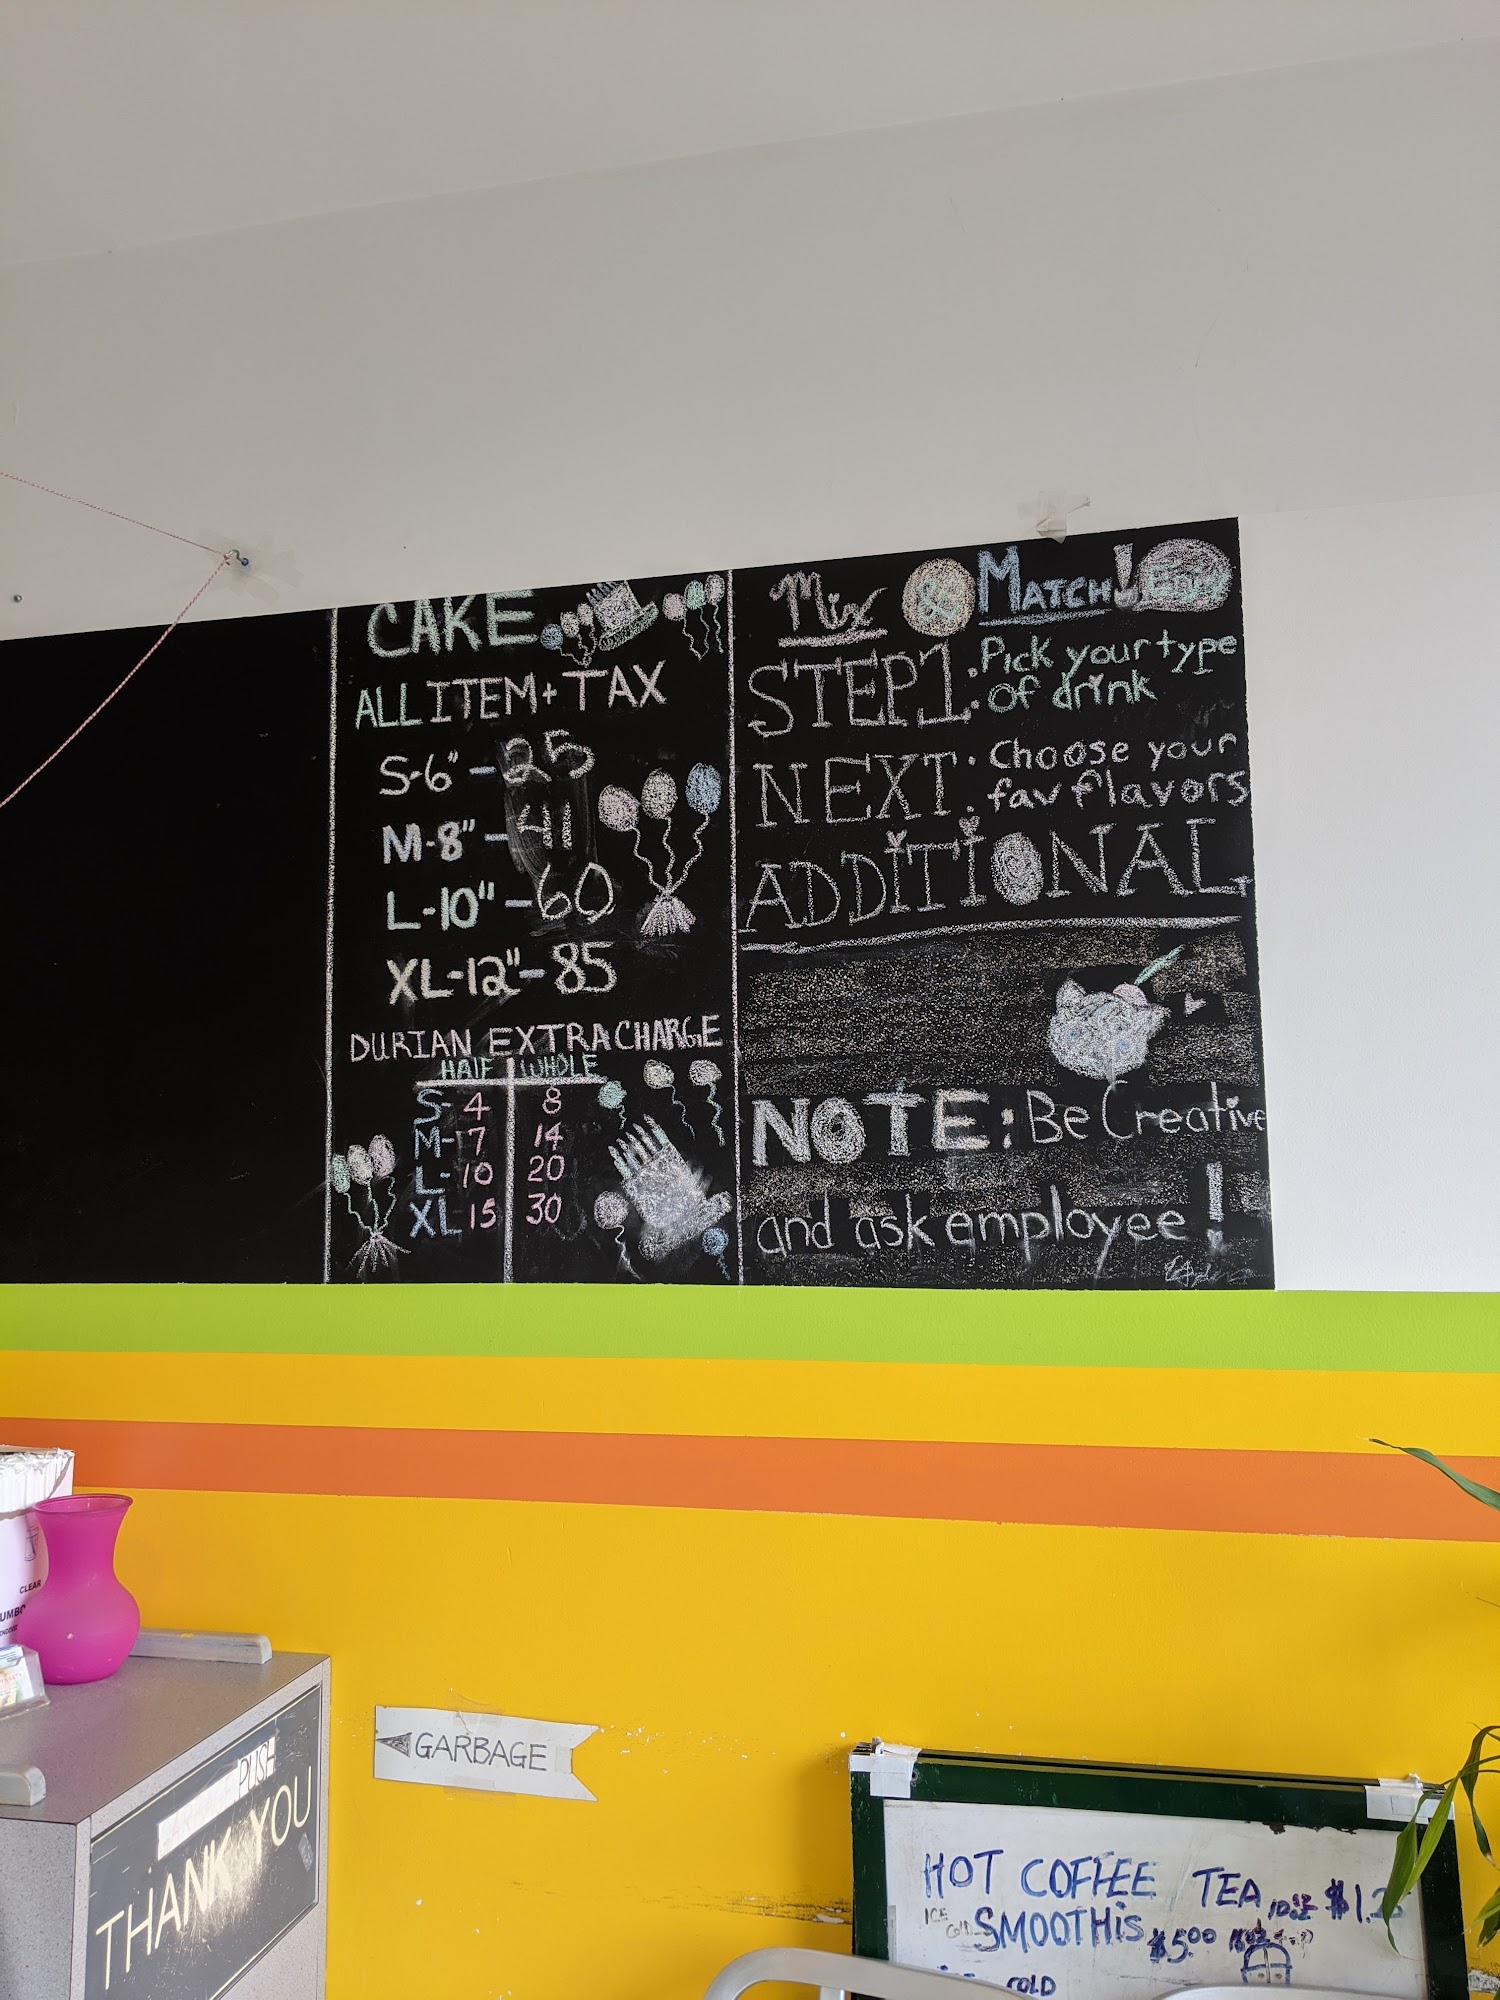 CAKE
ALL ITEM + TAX
S-6" - 25
M-8" - 41
L-10" - 60
XL-12" - 85
DURIAN EXTRA CHARGE
HALF WHOLE
S- 4 8
M- 7 14
L- 10 20
XL 15 30
Mix & MATCH! Enjoy
STEP1: Pick your type
of drink
NEXT: Choose your
fav flavors
ADDITIONAL
NOTE: Be Creative
and ask employee!
CLEAR
PUSH
THANK YOU
GARBAGE
HOT COFFEE TEA 10oz $1.25
ICE
SMOOTHiS $5.00 16oz
COLD